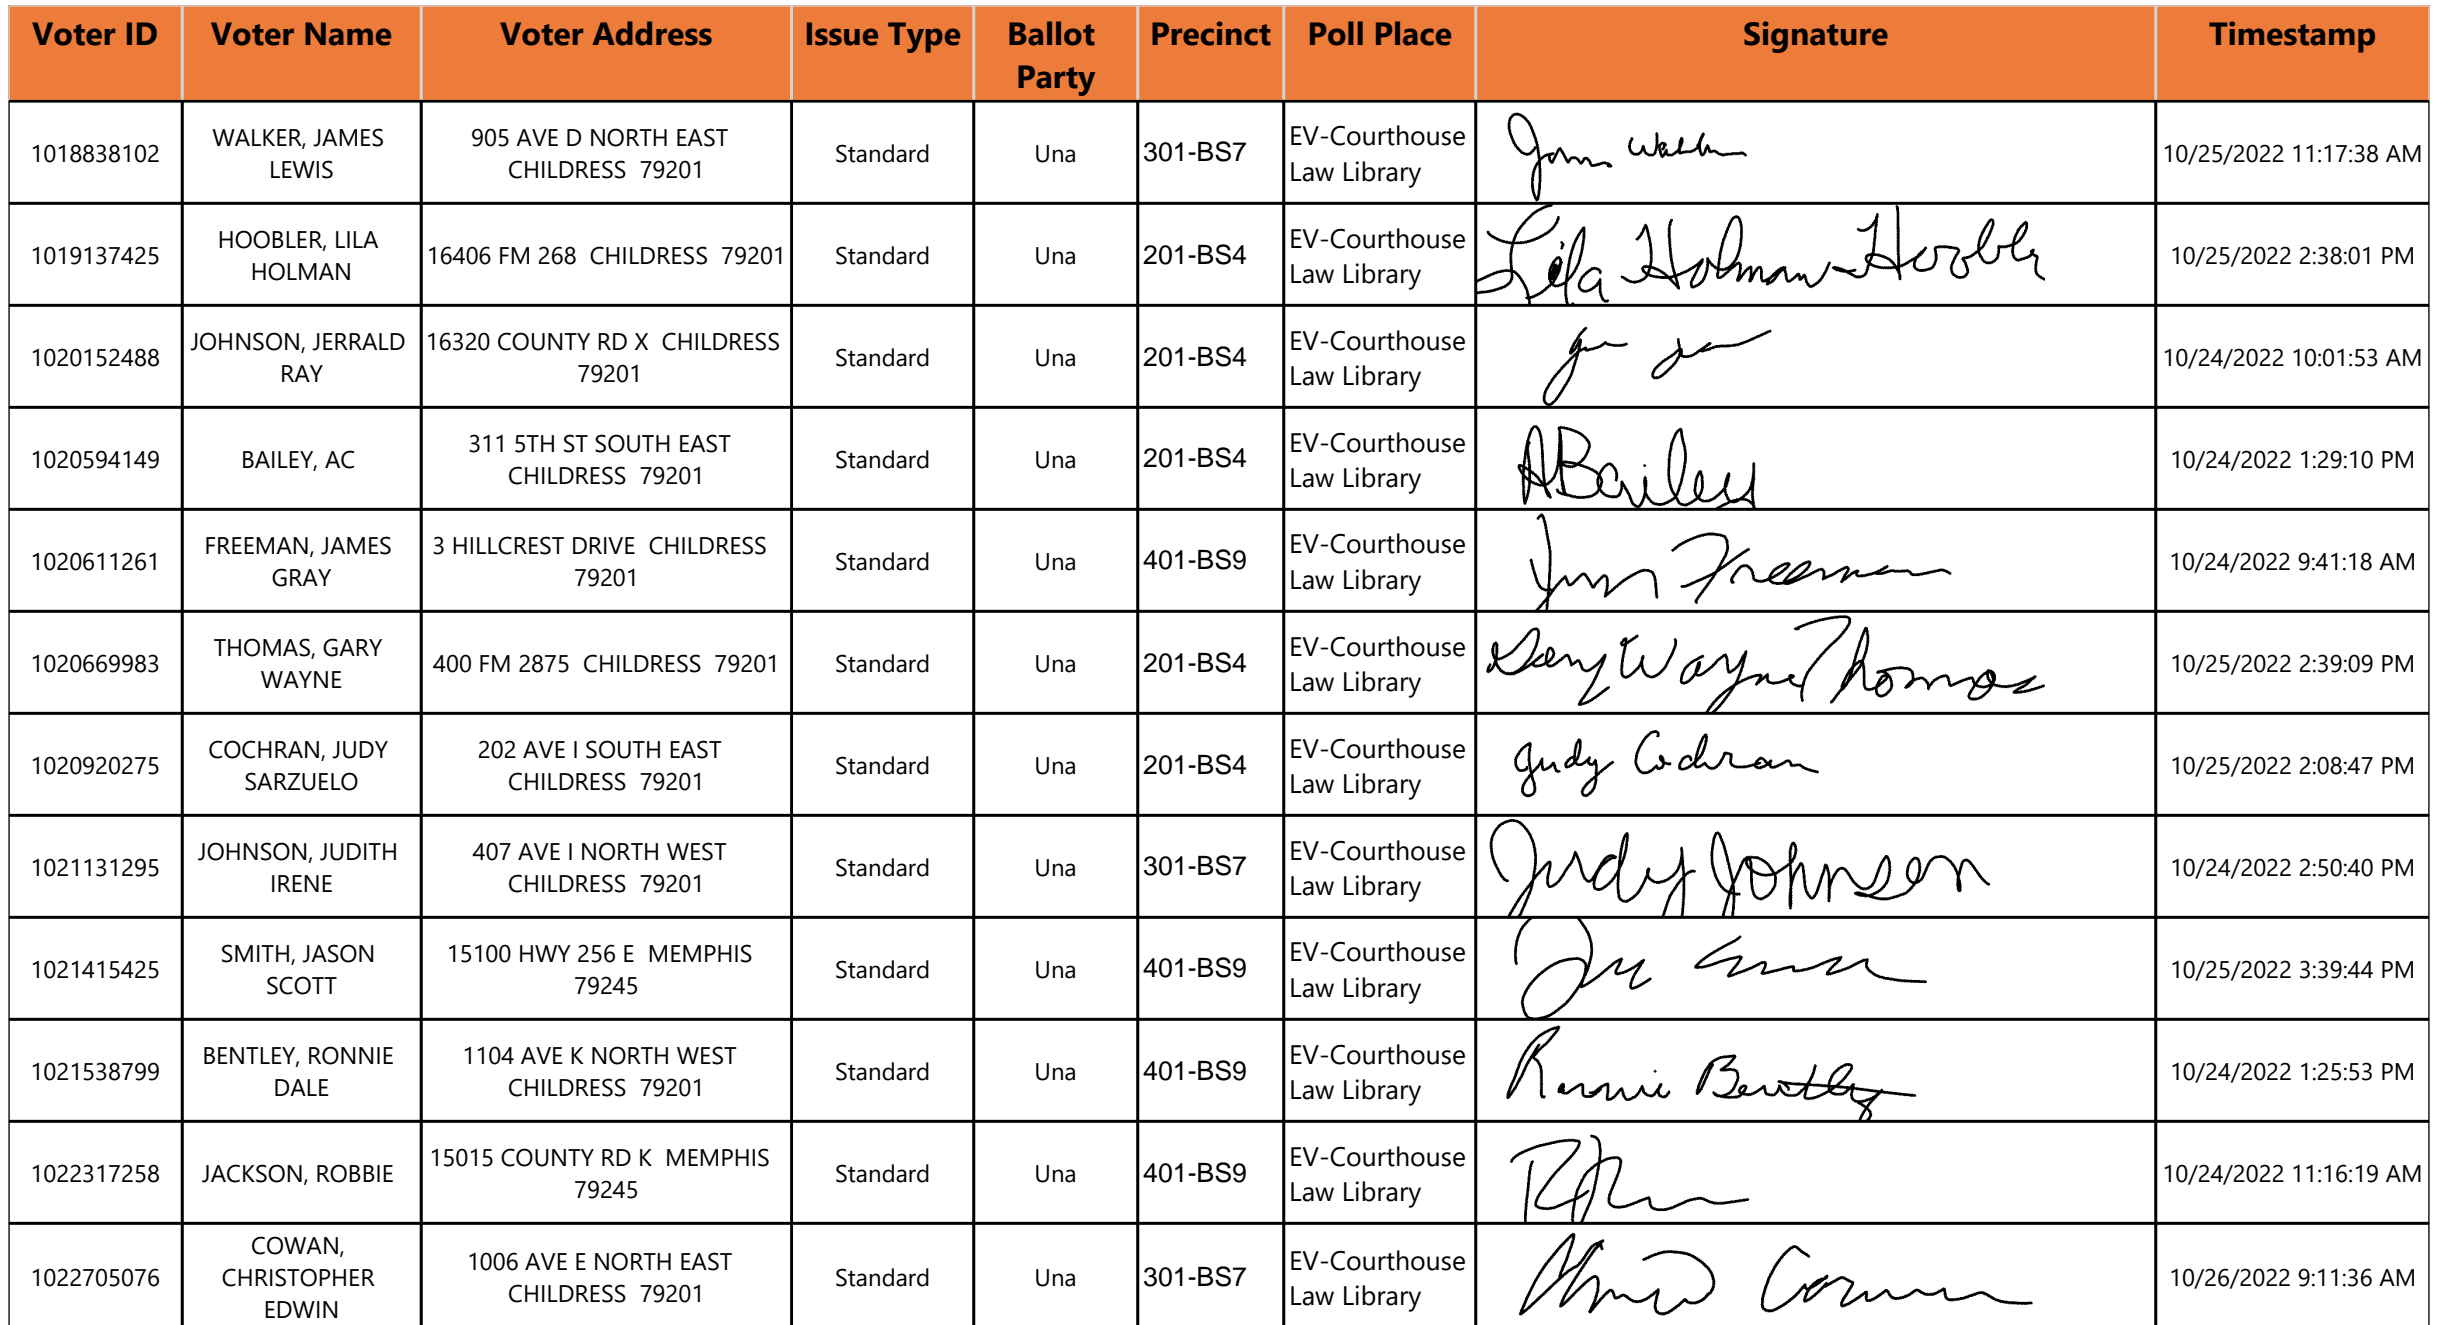 Voter ID Voter Name Voter Address Issue Type Ballot Party Precinct Poll Place Signature Timestamp
1018838102 WALKER, JAMES LEWIS 905 AVE D NORTH EAST CHILDRESS 79201 Standard Una 301-BS7 EV-Courthouse Law Library 10/25/2022 11:17:38 AM
1019137425 HOOBLER, LILA HOLMAN 16406 FM 268 CHILDRESS 79201 Standard Una 201-BS4 EV-Courthouse Law Library Lila Holman-Hoobler 10/25/2022 2:38:01 PM
1020152488 JOHNSON, JERRALD RAY 16320 COUNTY RD X CHILDRESS 79201 Standard Una 201-BS4 EV-Courthouse Law Library 10/24/2022 10:01:53 AM
1020594149 BAILEY, AC 311 5TH ST SOUTH EAST CHILDRESS 79201 Standard Una 201-BS4 EV-Courthouse Law Library ABailey 10/24/2022 1:29:10 PM
1020611261 FREEMAN, JAMES GRAY 3 HILLCREST DRIVE CHILDRESS 79201 Standard Una 401-BS9 EV-Courthouse Law Library Freeman 10/24/2022 9:41:18 AM
1020669983 THOMAS, GARY WAYNE 400 FM 2875 CHILDRESS 79201 Standard Una 201-BS4 EV-Courthouse Law Library Gary Wayne Thomas 10/25/2022 2:39:09 PM
1020920275 COCHRAN, JUDY SARZUELO 202 AVE I SOUTH EAST CHILDRESS 79201 Standard Una 201-BS4 EV-Courthouse Law Library Judy Cochran 10/25/2022 2:08:47 PM
1021131295 JOHNSON, JUDITH IRENE 407 AVE I NORTH WEST CHILDRESS 79201 Standard Una 301-BS7 EV-Courthouse Law Library Judy Johnson 10/24/2022 2:50:40 PM
1021415425 SMITH, JASON SCOTT 15100 HWY 256 E MEMPHIS 79245 Standard Una 401-BS9 EV-Courthouse Law Library 10/25/2022 3:39:44 PM
1021538799 BENTLEY, RONNIE DALE 1104 AVE K NORTH WEST CHILDRESS 79201 Standard Una 401-BS9 EV-Courthouse Law Library Ronnie Bentley 10/24/2022 1:25:53 PM
1022317258 JACKSON, ROBBIE 15015 COUNTY RD K MEMPHIS 79245 Standard Una 401-BS9 EV-Courthouse Law Library 10/24/2022 11:16:19 AM
1022705076 COWAN, CHRISTOPHER EDWIN 1006 AVE E NORTH EAST CHILDRESS 79201 Standard Una 301-BS7 EV-Courthouse Law Library 10/26/2022 9:11:36 AM